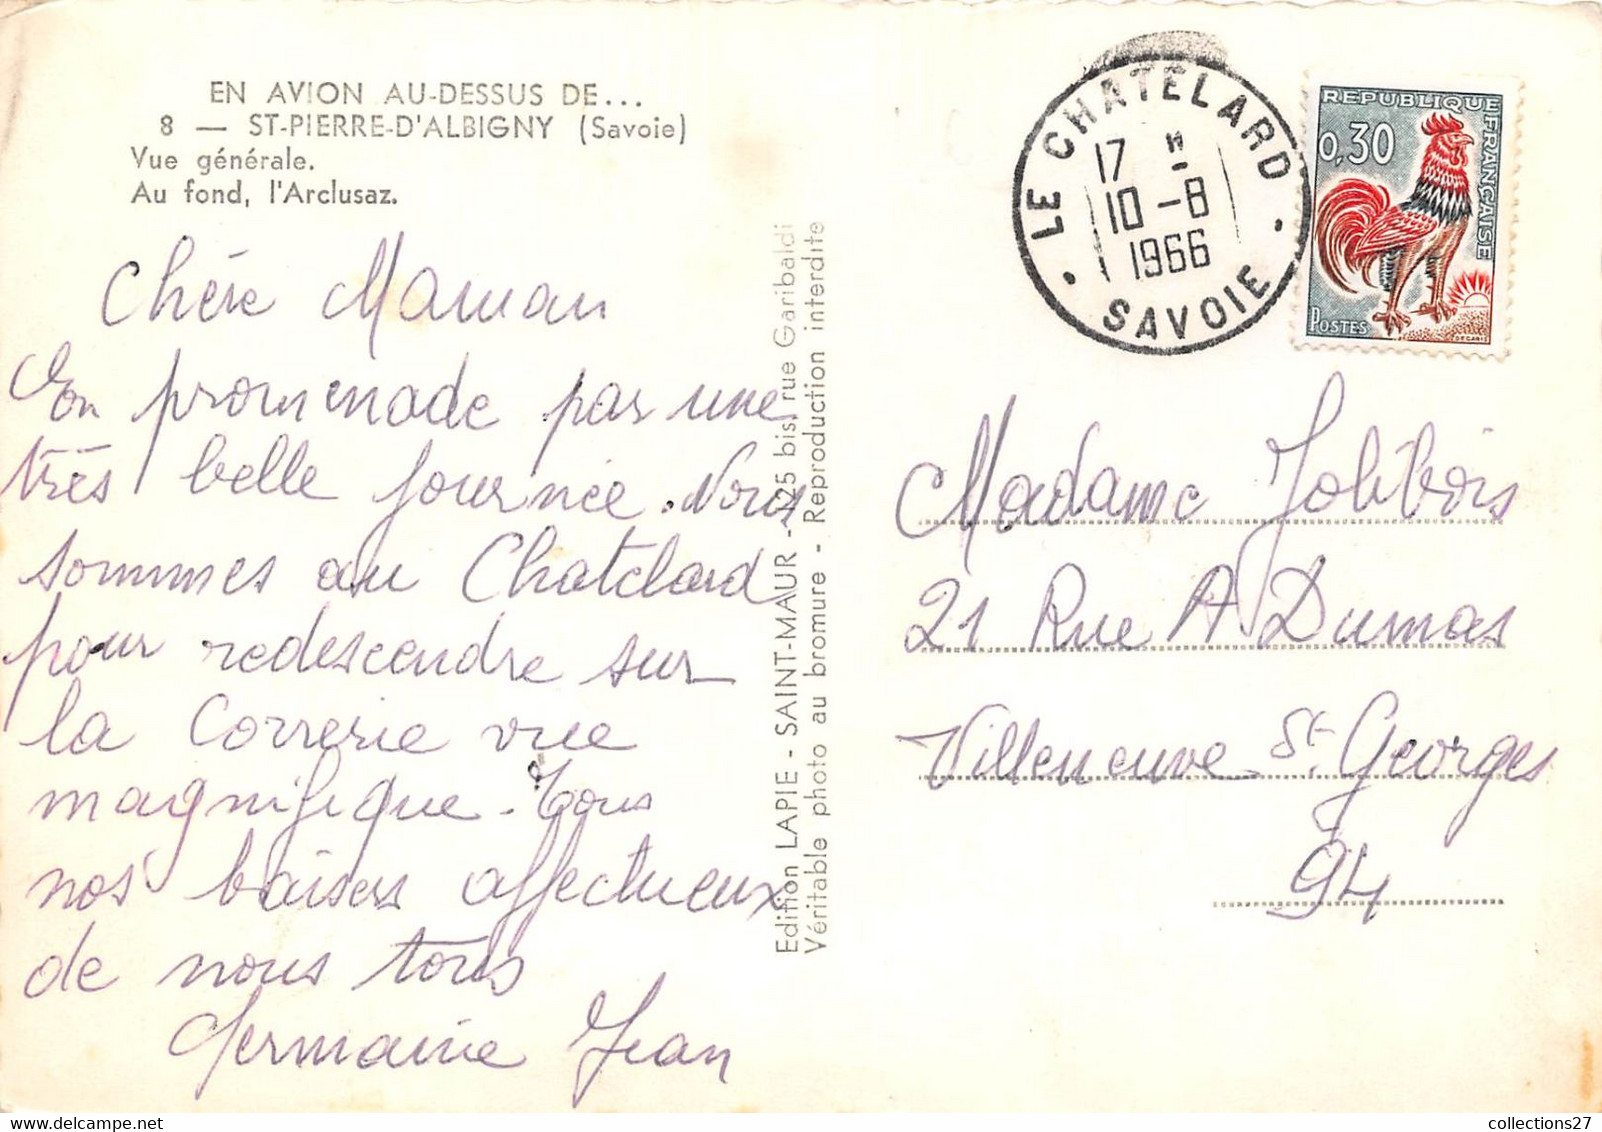 EN AVION AU-DESSUS DE...
8 — ST-PIERRE-D'ALBIGNY (Savoie)
Vue générale.
Au fond, l'Arclusaz.
Chère Maman
En promenade par une
très belle journée. Nous
sommes au Chatelard
pour redescendre sur
la Correrie vue
magnifique. Tous
nos baisers affectueux
de nous tous
Germaine Jean
Edition LAPIE - SAINT-MAUR - 125 bis, rue Garibaldi
Véritable photo au bromure - Reproduction interdite
LE CHATELARD
17 H
10 - 8
1966
SAVOIE
REPUBLIQUE FRANÇAISE
0,30
POSTES
DECARIS
Madame Jolibois
21 Rue A Dumas
Villeneuve St Georges
94
collections27